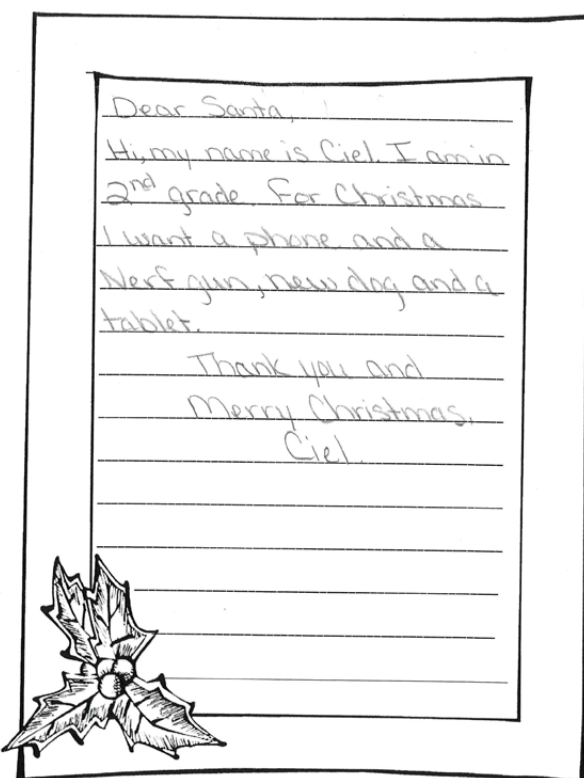 Dear Santa,
Hi, my name is Ciel. I am in
2nd grade. For Christmas
I want a phone and a
Nerf gun, new dog and a
tablet.
Thank you and
Merry Christmas,
Ciel.